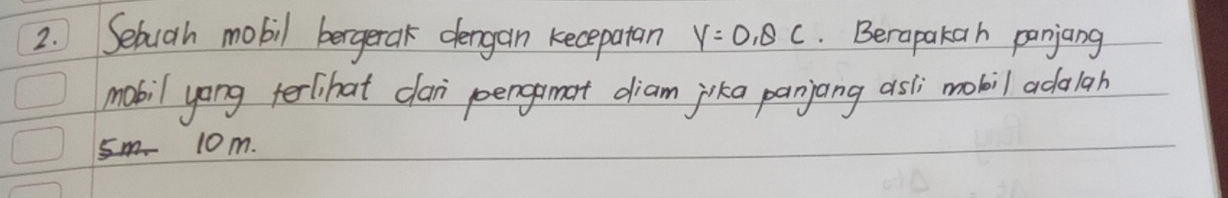 2. Sebuah mobil bergerak dengan kecepatan V = 0,8 C. Berapakah panjang
mobil yang terlihat dari pengamat diam jika panjang asli mobil adalah
5m. 10 m.